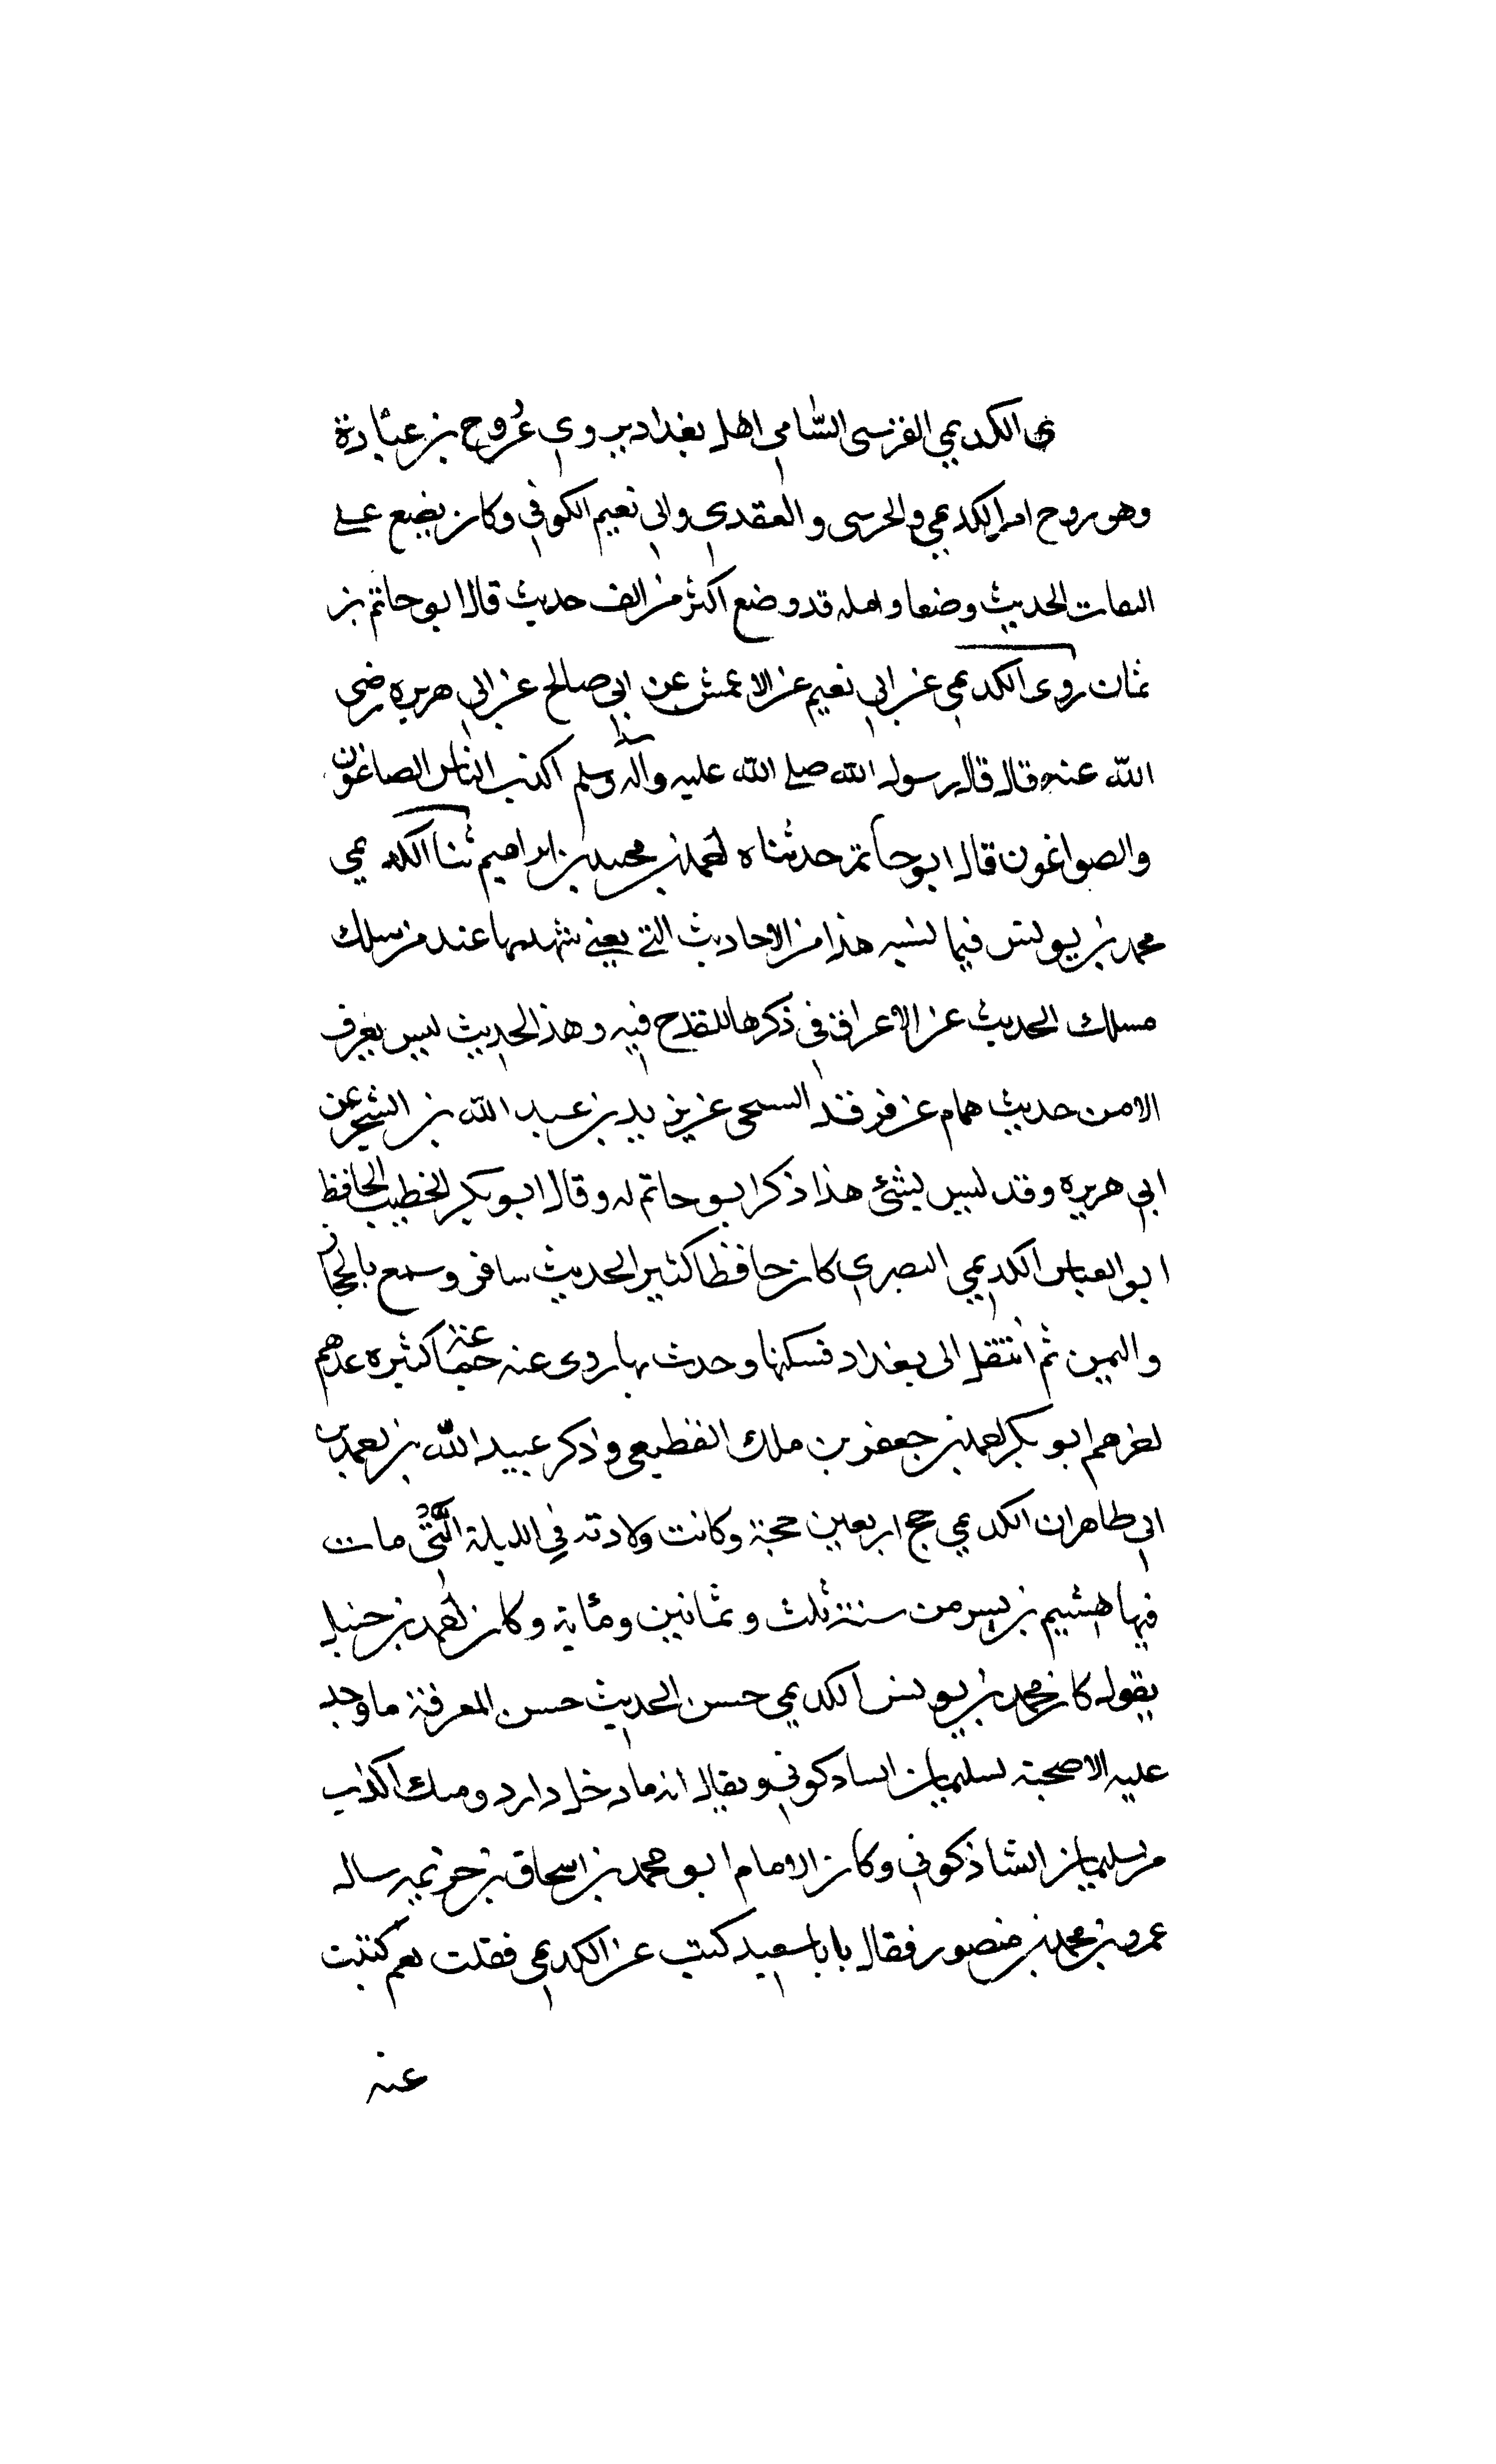 الكديمي القرشى السّامى اهل بغداد يروى عن روح بن عبادة
وهو روح امر الكديمي والحرسى والعقدي وابي نعيم الكوفي وكان يضع على
الثقات الحديث وضعا ولعله قد وضع اكثر من الف حديث قال ابو حاتم بن
روى الكديمي عن ابي نعيم عن الاعمش عن ابي صالح عن ابي هريره رضى
الله عنه قال قال رسول الله صلى الله عليه وآله وسلم اكذب الناس الصباغون
والصواغون قال ابو حاتم حدثناه احمد بن محمد بن ابراهيم ثنا الكديمي
محمد بن يونس فيما يشبه هذا من الاحاديث التي يعني شهرتها عند من سلك
مسلك الحديث عن الاعراق في ذكرها للقدح فيه وهذا الحديث ليس يعرف
الا من حديث همام عن فرقد السبحى عن يزيد بن عبد الله بن الشخير عن
ابي هريره وقد ليس بشئ هذا ذكر ابو حاتم له وقال ابو بكر الخطيب الحافظ
ابو العباس الكديمي البصرى كان حافظا كثير الحديث سافر وسمع بالحجاز
واليمن ثم انتقل الى بغداد فسكنها وحدث بها روى عنه كثيره
ابو بكر احمد بن جعفر بن ملك القطيعى وذكر عبيد الله بن احمد بن
ابي طاهر ان الكديمي حج اربعين حجة وكانت ولادته في الليلة الّتى مات
فيها هشيم بن بشير من سنة ثلث وثمانين ومائة وكان احمد بن حنبل
يقول كان محمد بن يونس الكديمي حسن الحديث حسن المعرفة ما وجد
عليه الا صحبة لسليمان الشاذكوني ويقال انه ما دخل دار دوميك اكذب
من سليمان الشاذكوني وكان الامام ابو محمد بن اسحاق بن خزيمه يساله
عمرو بن محمد بن منصور فقال يا با سعيد كتبت عن الكديمي فقلت نعم كتبت
عنه